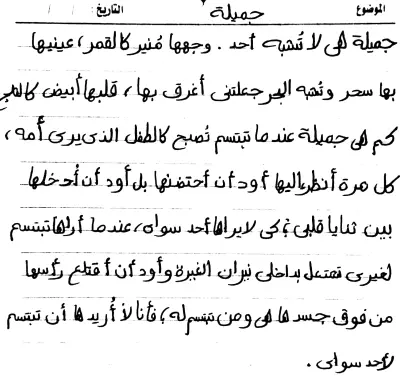 الموضوع جميلة التاريخ: / /
جميلة هى لا تُشبه أحد . وجهها مُنير كالقمر، عينيها
بها سحر وتُشبه البحر جعلتنى أغرق بها، قلبها أبيض كالثلج
كم هى جميلة عندما تبتسم تُصبح كالطفل الذى يرى أمه،
كل مرة أنظر إليها أود أن أحتضنها بل أود أن أُدخلها
بين ثنايا قلبى؛ كى لا يراها أحد سواى، عندما أراها تبتسم
لغيرى تشتعل بداخلى نيران الغيرة وأود أن أقتلع رأسها
من فوق جسدها هى ومن تبتسم له؛ فأنا لا أُريدها أن تبتسم
لأحد سواى .